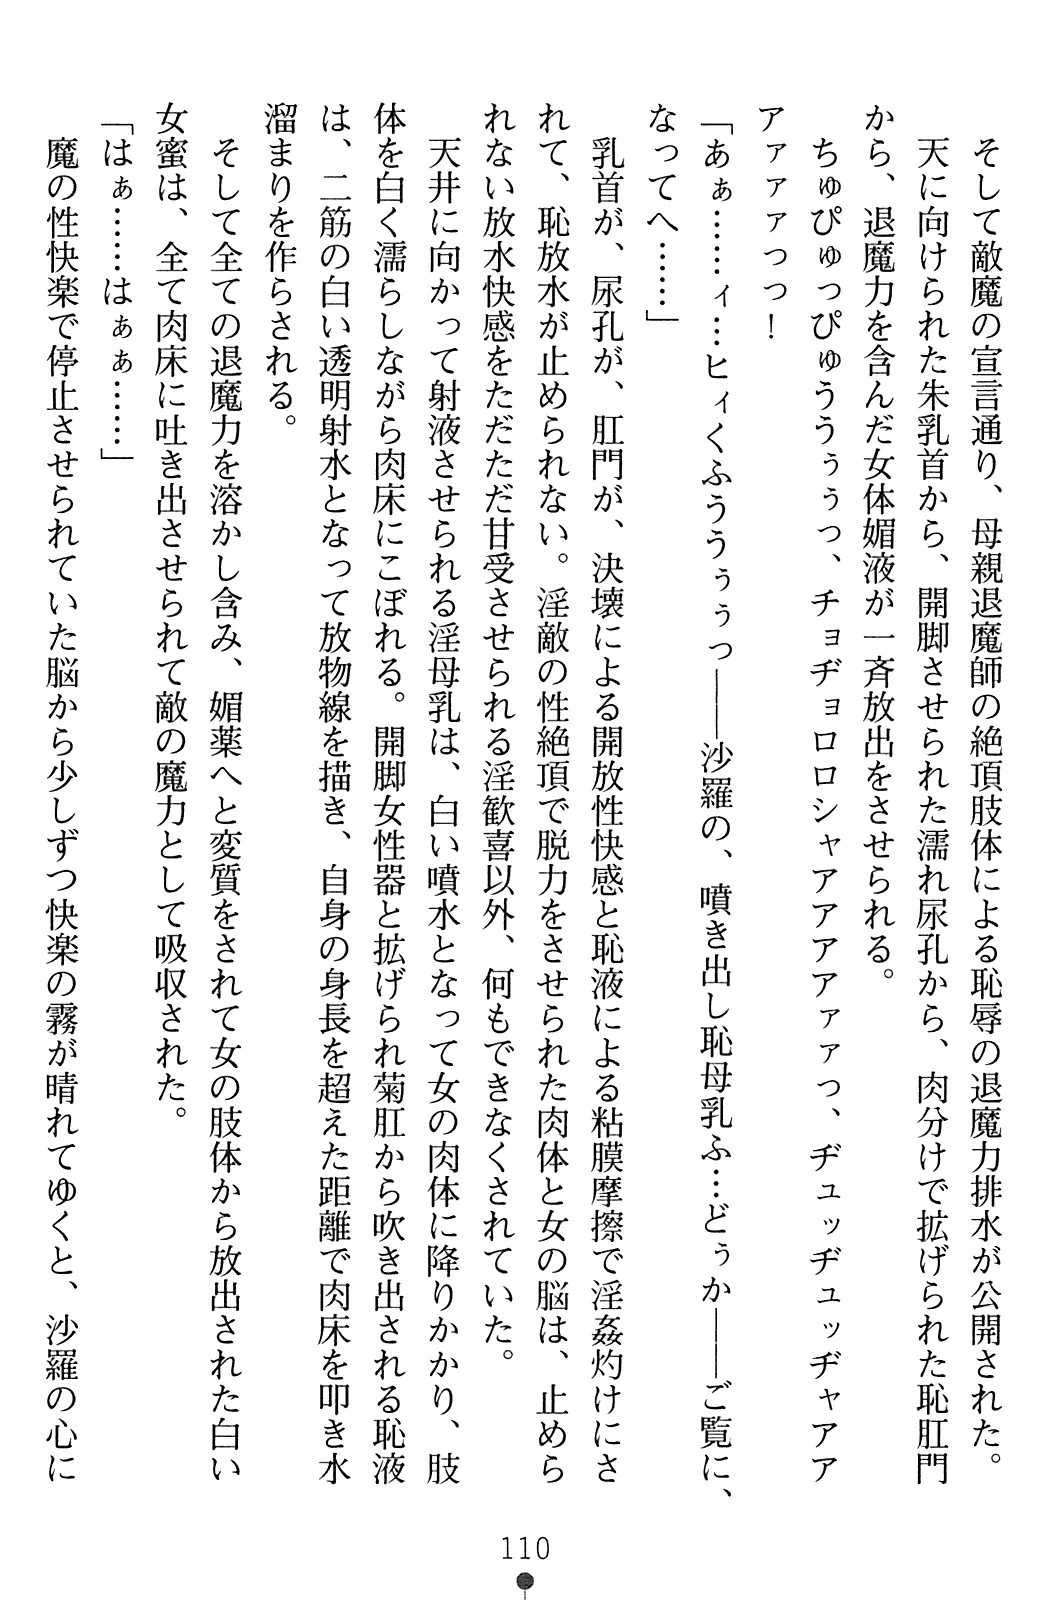 そして敵魔の宣言通り、母親退魔師の絶頂肢体による恥辱の退魔力排水が公開された。
天に向けられた朱乳首から、開脚させられた濡れ尿孔から、肉分けで拡げられた恥肛門
から、退魔力を含んだ女体媚液が一斉放出をさせられる。
ちゅぴゅっぴゅううぅぅっ、チョヂョロロシャアアアアァァっ、ヂュッヂュッヂャアア
アァァァっっ！
「あぁ……ィ…ヒィくふううぅぅっ――沙羅の、噴き出し恥母乳ふ…どぅか――ご覧に、
なってへ……」
乳首が、尿孔が、肛門が、決壊による開放性快感と恥液による粘膜摩擦で淫姦灼けにさ
れて、恥放水が止められない。淫敵の性絶頂で脱力をさせられた肉体と女の脳は、止めら
れない放水快感をただただ甘受させられる淫歓喜以外、何もできなくされていた。
天井に向かって射液させられる淫母乳は、白い噴水となって女の肉体に降りかかり、肢
体を白く濡らしながら肉床にこぼれる。開脚女性器と拡げられ菊肛から吹き出される恥液
は、二筋の白い透明射水となって放物線を描き、自身の身長を超えた距離で肉床を叩き水
溜まりを作らされる。
そして全ての退魔力を溶かし含み、媚薬へと変質をされて女の肢体から放出された白い
女蜜は、全て肉床に吐き出させられて敵の魔力として吸収された。
「はぁ……はぁぁ……」
魔の性快楽で停止させられていた脳から少しずつ快楽の霧が晴れてゆくと、沙羅の心に
110